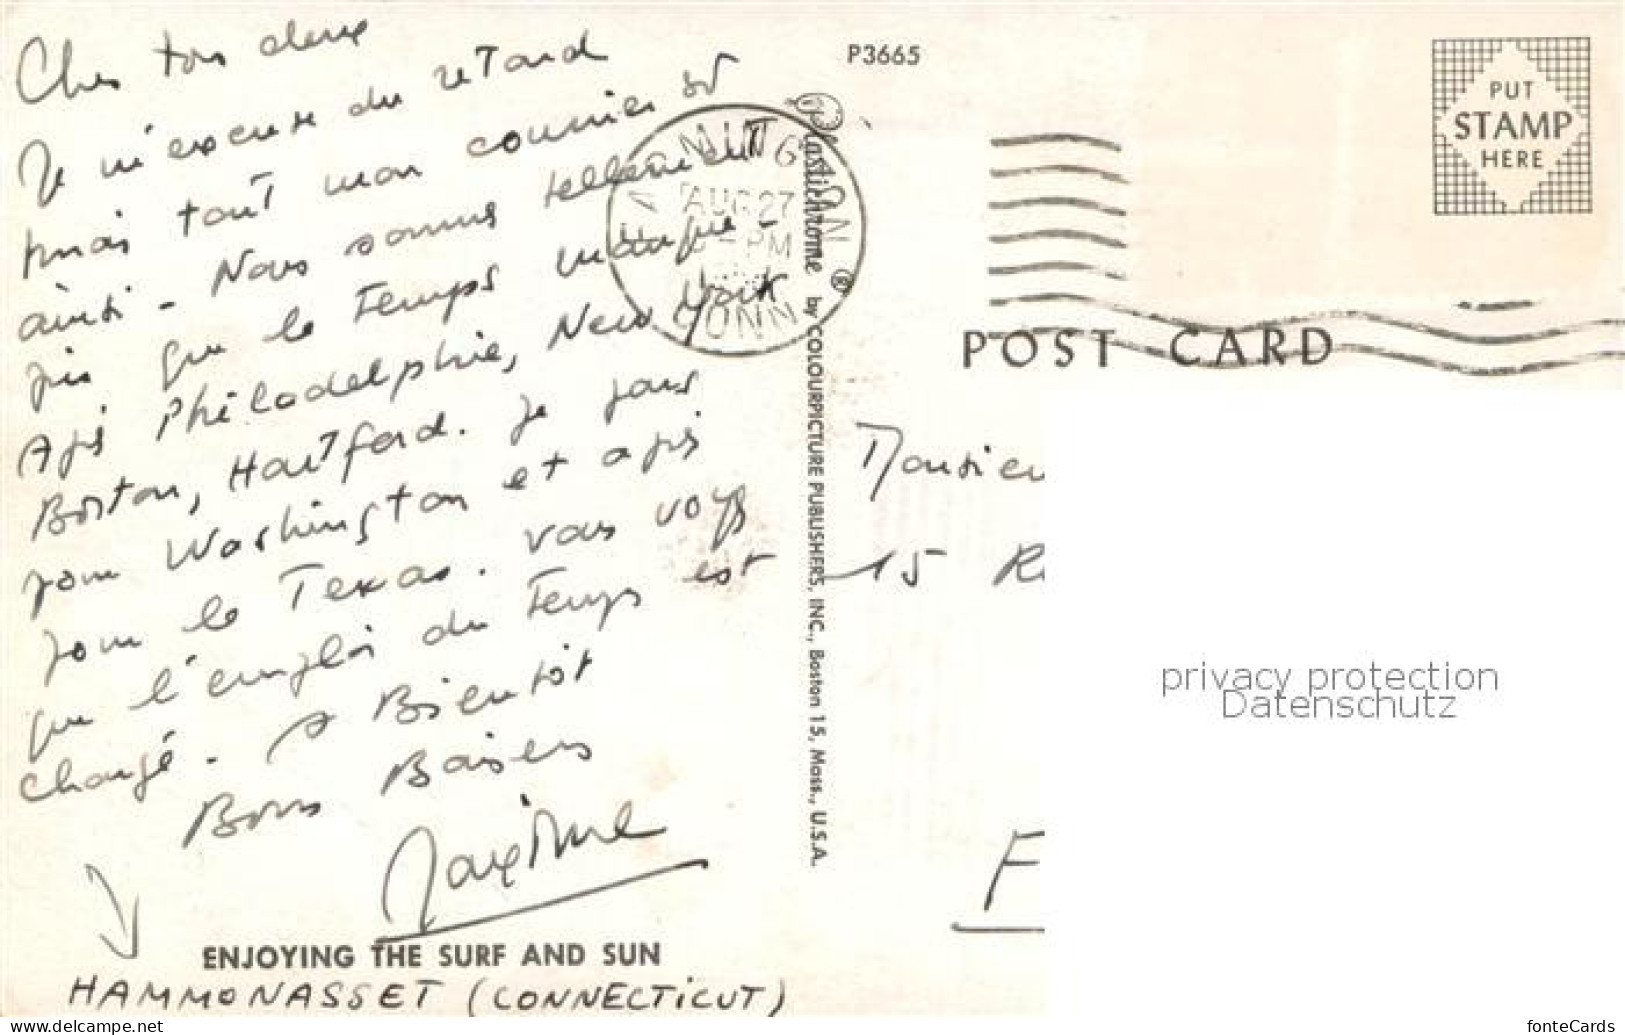 Chers tous deux
Je m'excuse du retard
mais tout mon courrier est
ainsi - Nous sommes tellement
pris que le Temps manque -
Aprs Philadelphie, New York
Boston, Hartford. Je pars
pour Washington et aprs
pour le Texas. Vous voyez
que l'emploi du Temps est
changé. A Bientôt
Bons Baisers
Maxime
ENJOYING THE SURF AND SUN
HAMMONASSET (CONNECTICUT)
P3665
Plastichrome ® by COLOURPICTURE PUBLISHERS, INC., Boston 15, Mass., U.S.A.
AUG 27
PM
CONN
PUT
STAMP
HERE
POST CARD
Monsieu
15 R
F
privacy protection
Datenschutz
www.delcampe.net
fonteCards